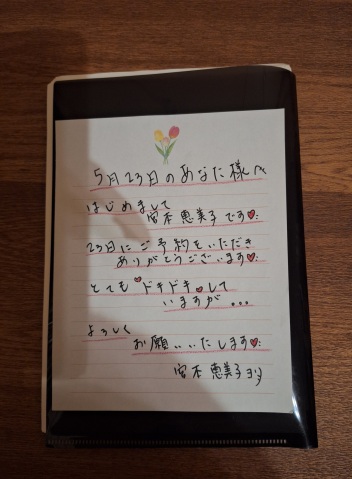 5月23日のあなた様へ
はじめまして
宮本恵美子です♥
23日にご予約をいただき
ありがとうございます♥
とても♥ドキドキ♥して
いますが...
よろしく
お願いいたします♥
宮本恵美子ヨリ